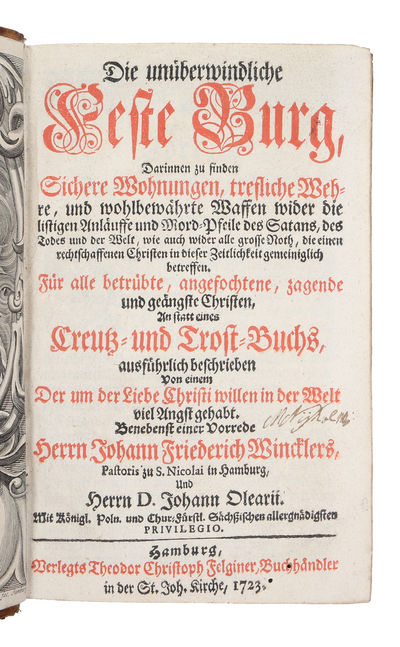 Die unüberwindliche
Feste Burg,
Darinnen zu finden
Sichere Wohnungen, trefliche Weh-
re, und wohlbewährte Waffen wider die
listigen Anläuffe und Mord-Pfeile des Satans, des
Todes und der Welt, wie auch wider alle grosse Noth, die einen
rechtschaffenen Christen in dieser Zeitlichkeit gemeiniglich
betreffen.
Für alle betrübte, angefochtene, zagende
und geängste Christen,
An statt eines
Creutz- und Trost-Buchs,
ausführlich beschrieben
Von einem
Der um der Liebe Christi willen in der Welt
viel Angst gehabt.
Benebenst einer Vorrede
Herrn Johann Friederich Wincklers,
Pastoris zu S. Nicolai in Hamburg,
Und
Herrn D. Johann Olearii.
Mit Königl. Poln. und Chur-Fürstl. Sächßischen allergnädigsten
PRIVILEGIO.
Hamburg,
Verlegts Theodor Christoph Felginer, Buchhändler
in der St. Joh. Kirche, 1723.